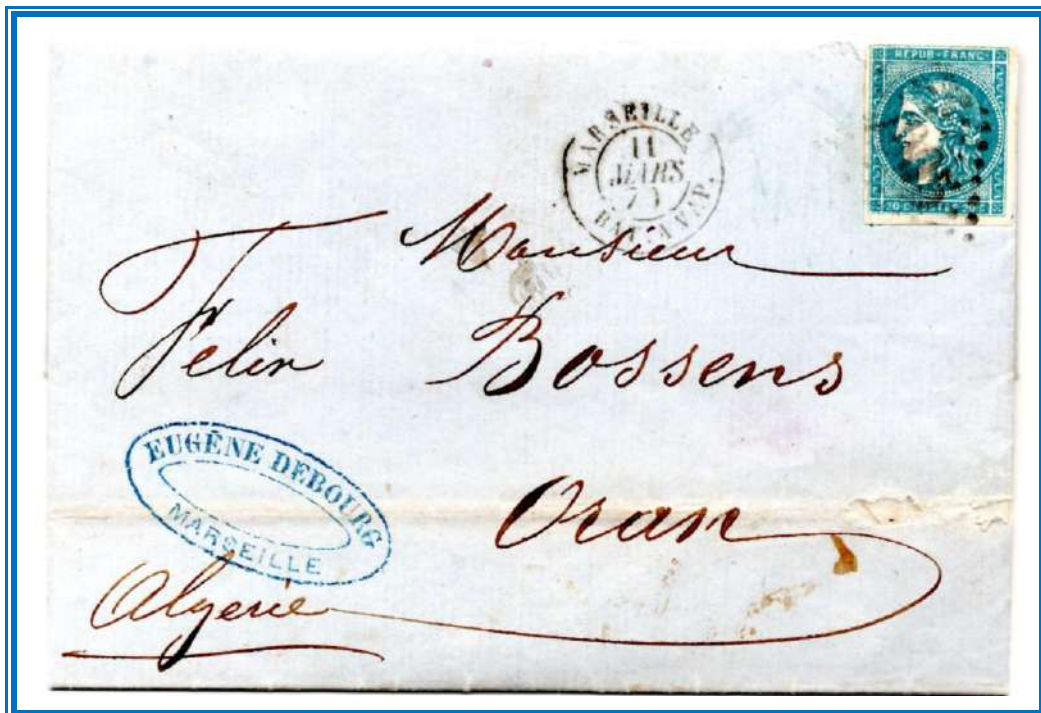 REPUB · FRANC
MARSEILLE
11
MARS
BAT. A VAP.
Monsieur
Félix Bossens
EUGÈNE DEBOURG
MARSEILLE
Oran
Algerie